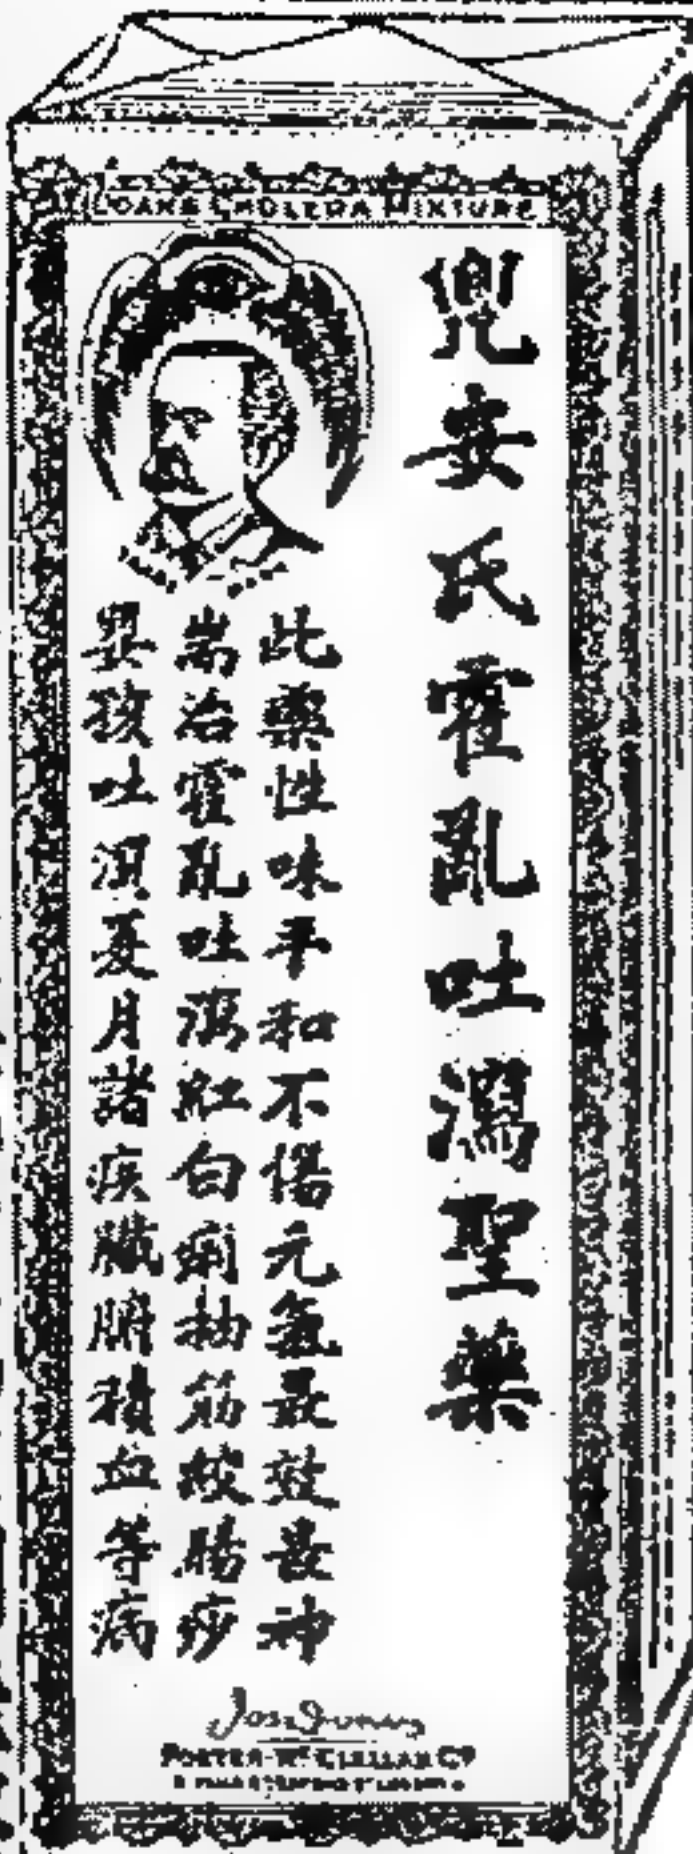 DOANS CHOLERA MIXTURE
兜安氏霍亂吐瀉聖藥
此藥性味平和不傷元氣最效最神
耑治霍亂吐瀉紅白痢抽筋絞腸痧
嬰孩吐瀉夏月諸疾臟腑積血等病
FOSTER-McCLELLAN Co